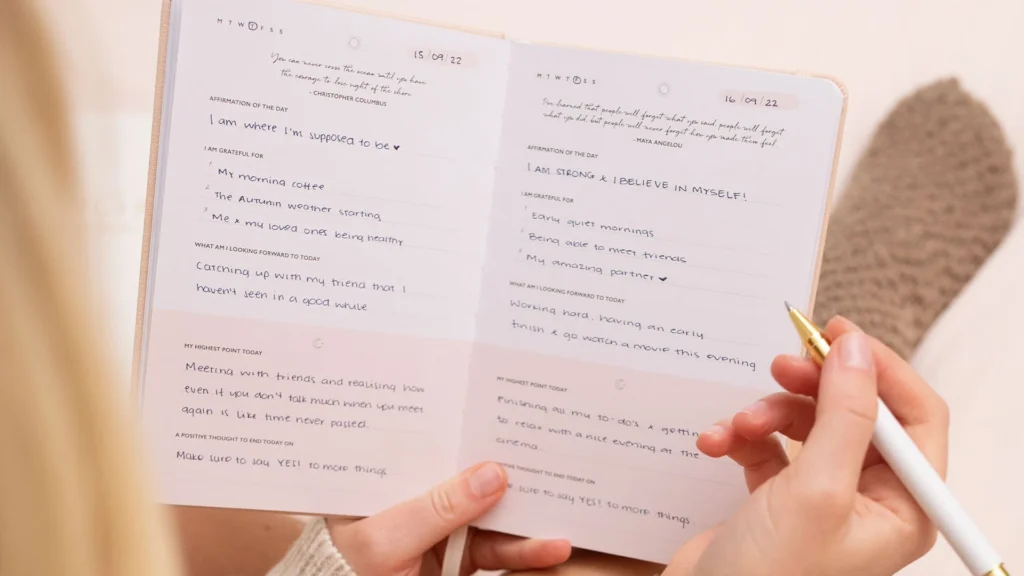 M T W T F S S
15/09/22
You can never cross the ocean until you have
the courage to lose sight of the shore
- CHRISTOPHER COLUMBUS
AFFIRMATION OF THE DAY
I am where I'm supposed to be ♥
I AM GRATEFUL FOR
1 My morning coffee
2 The Autumn weather starting
3 Me & my loved ones being healthy
WHAT AM I LOOKING FORWARD TO TODAY
Catching up with my friend that I
haven't seen in a good while
MY HIGHEST POINT TODAY
Meeting with friends and realising how
even if you don't talk much when you meet
again is like time never passed.
A POSITIVE THOUGHT TO END TODAY ON
Make sure to say YES! to more things
M T W T F S S
16/09/22
I've learned that people will forget what you said, people will forget
what you did, but people will never forget how you made them feel.
-MAYA ANGELOU
AFFIRMATION OF THE DAY
I AM STRONG & I BELIEVE IN MYSELF!
I AM GRATEFUL FOR
1 Early quiet mornings
2 Being able to meet friends
3 My amazing partner ♥
WHAT AM I LOOKING FORWARD TO TODAY
Working hard, having an early
finish & go watch a movie this evening
MY HIGHEST POINT TODAY
Finishing all my to-do's & gettin
to relax with a nice evening at the
cinema.
THOUGHT TO END TODAY ON
sure to say YES! to more things